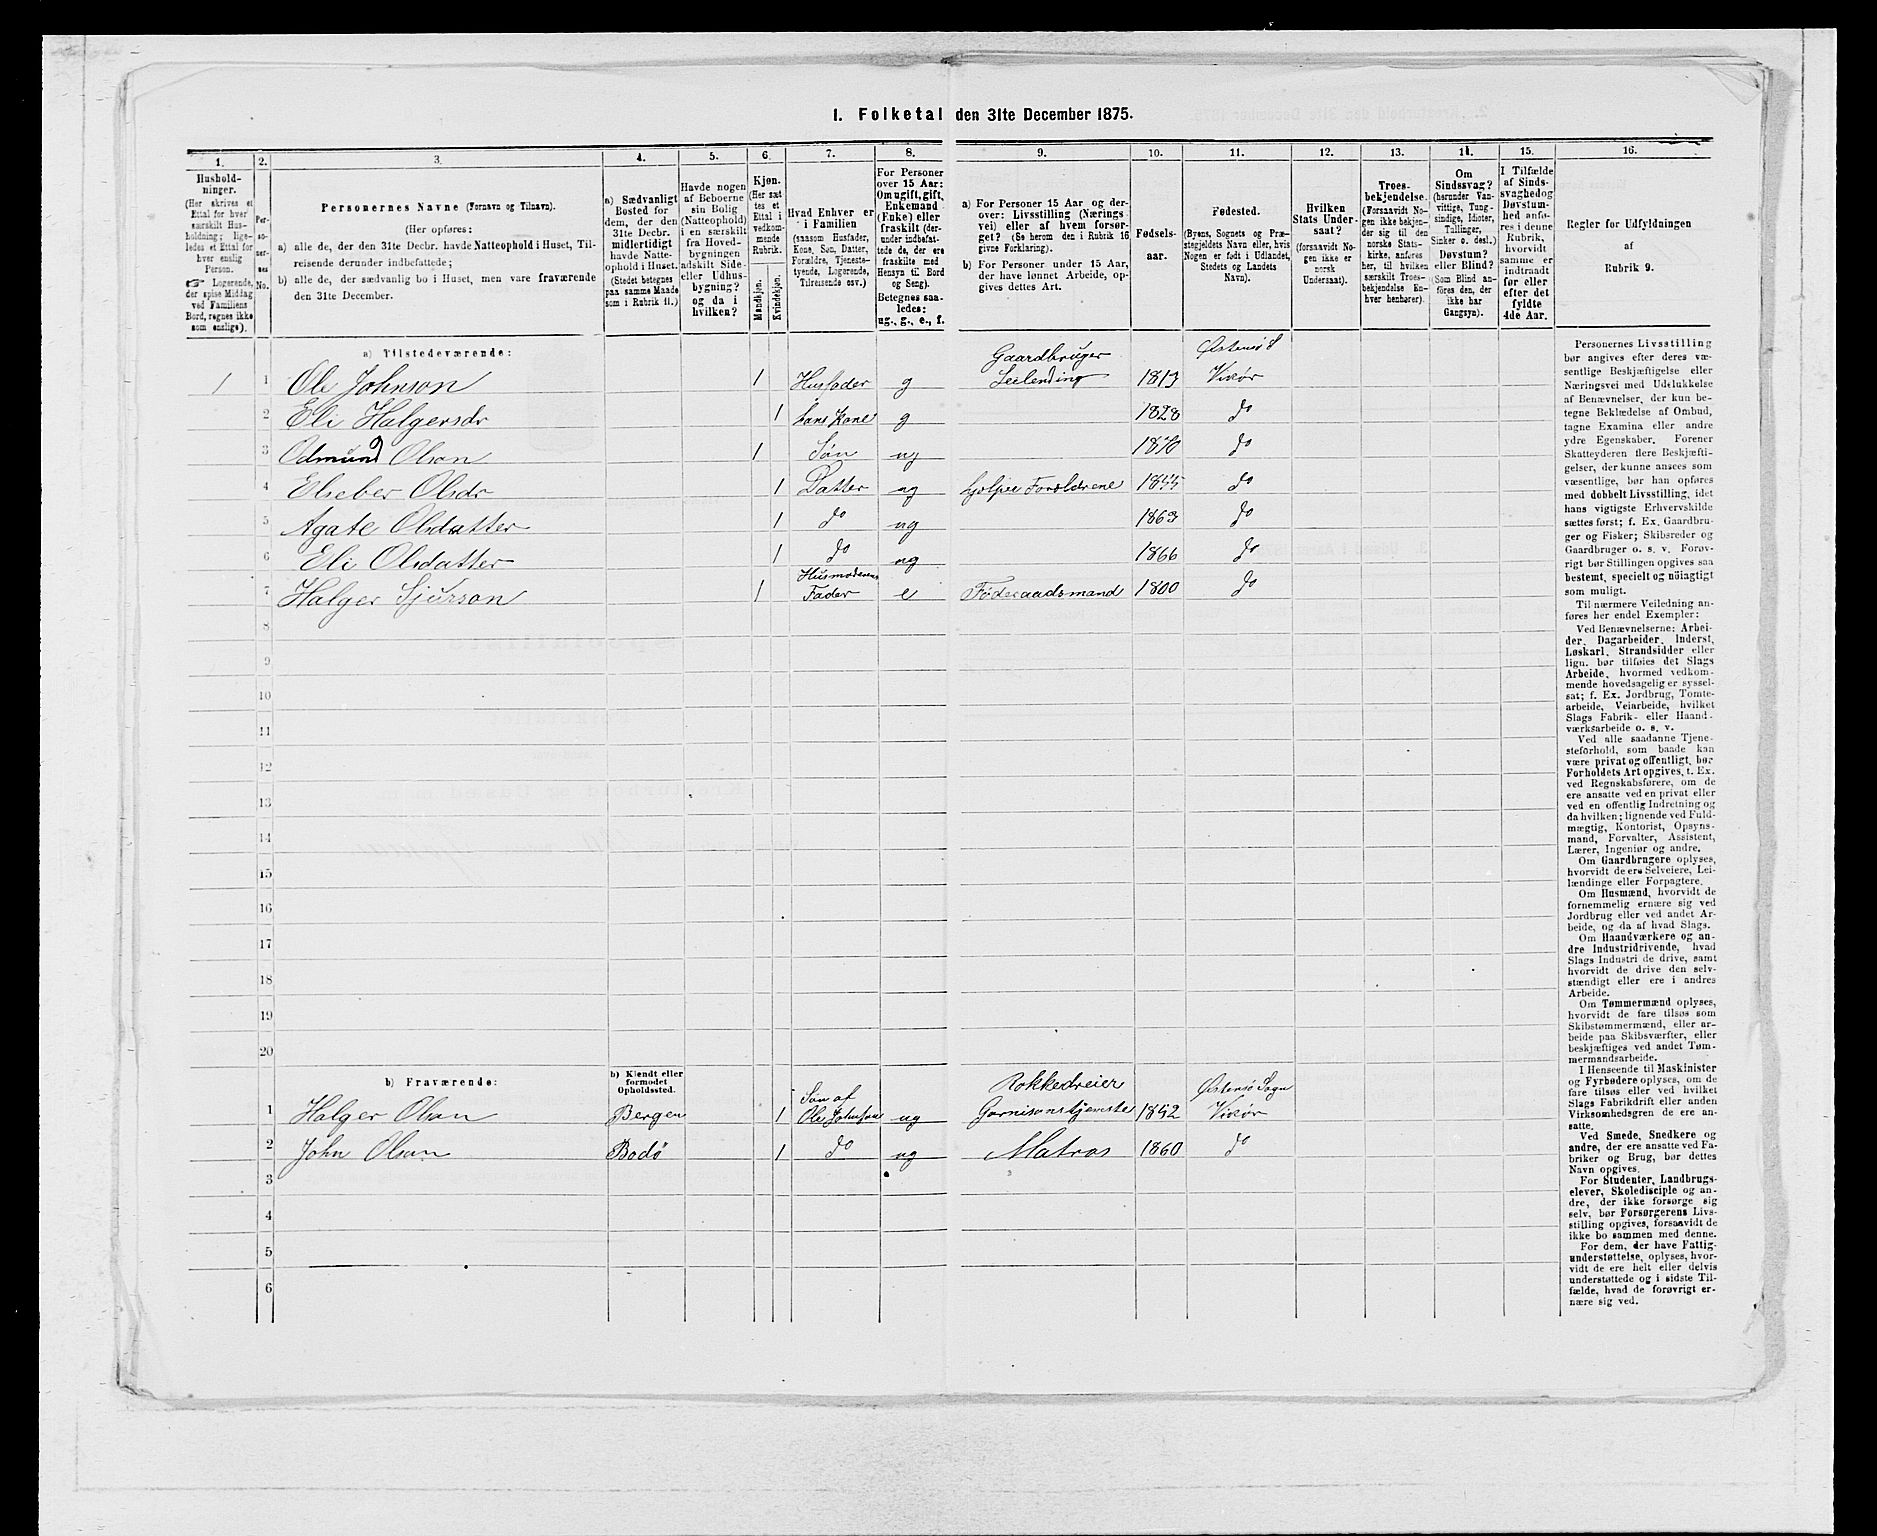 1. Folketal den 31te December 1875.
1. 2. 3. 4. 5. 6. 7. 8. 9. 10. 11. 12. 13. 14. 15. 16.
Hushold-
ninger.
(Her skrives et
Ettal for hver
særskilt Hus-
holdning; lige-
ledes et Ettal for
hver enslig
Person.
☞ Logerende,
der spise Middag
ved Familiens
Bord, regnes ikke
som enslige).
Per-
so-
ner-
nes
No.
Personernes Navne (Fornavn og Tilnavn).
(Her opføres:
a) alle de, der den 31te Decbr. havde Natteophold i Huset, Til-
reisende derunder indbefattede;
b) alle de, der sædvanlig bo i Huset, men vare fraværende
den 31te December.
a) Sædvanligt
Bosted for
dem, der den
31te Decbr.
midlertidigt
havde Natte-
ophold i Huset.
(Stedet betegnes
paa samme Maade
som i Rubrik 11.)
Havde nogen
af Beboerne
sin Bolig
(Natteophold)
i en særskilt
fra Hoved-
bygningen
adskilt Side-
eller Udhus-
bygning?
og da i
hvilken?
Kjøn.
(Her sæt-
tes et
Ettal i
vedkom-
mende
Rubrik.
Mandkjøn.
Kvindekjøn.
Hvad Enhver er
i Familien
(saasom Husfader,
Kone, Søn, Datter,
Forældre, Tjeneste-
tyende, Logerende,
Tilreisende osv.)
For Personer
over 15 Aar:
Om ugift, gift,
Enkemand
(Enke) eller
fraskilt (der-
under indbefat-
tede de, der ere
fraskilte med
Hensyn til Bord
og Seng).
Betegnes saa-
ledes:
ug., g., e., f.
a) For Personer 15 Aar og der-
over: Livsstilling (Nærings-
vei) eller af hvem forsør-
get? (Se herom den i Rubrik 16
givne Forklaring).
b) For Personer under 15 Aar,
der have lønnet Arbeide, op-
gives dettes Art.
Fødsels-
aar.
Fødested.
(Byens, Sognets og Præ-
stegjeldets Navn eller, hvis
Nogen er født i Udlandet,
Stedets og Landets
Navn).
Hvilken
Stats Under-
saat?
(forsaavidt No-
gen ikke er
norsk
Undersaat).
Troes-
bekjendelse.
(Forsaavidt No-
gen ikke bekjen-
der sig til den
norske Stats-
kirke, anføres
her, til hvilken
særskilt Troes-
bekjendelse En-
hver henhører).
Om
Sindssvag?
(herunder Van-
vittige, Tung-
sindige, Idioter,
Tullinger,
Sinker o. desl.)
Døvstum?
eller Blind?
(Som Blind an-
føres den, der
ikke har
Gangsyn).
I Tilfælde
af Sinds-
svaghed og
Døvstum-
hed anfø-
res i denne
Rubrik,
hvorvidt
samme er
indtraadt
før eller
efter det
fyldte
4de Aar.
Regler for Udfyldningen
af
Rubrik 9.
a) Tilstedeværende:
1 1 Ole Johnson 1 Husfader g Gaardbruger Leilending 1813 Østensø S Vikør
2 Eli Halgersdr 1 hans Kone g 1828 do
3 Odmund Olson 1 Søn ug 1870 do
4 Elseber Olsdr 1 Datter ug hjelper Forældrene 1855 do
5 Agate Olsdatter 1 do ug 1863 do
6 Eli Olsdatter 1 do ug 1866 do
7 Halger Sjurson 1 Husmoderens Fader e Føderaadsmand 1800 do
8
9
10
11
12
13
14
15
16
17
18
19
20
b) Fraværende:
b) Kjendt eller
formodet
Opholdssted.
1 Halger Olson Bergen 1 Søn af Ole Johnson ug Rokkedreier Garnisonstjeneste 1852 Østensø Sogn Vikør
2 John Olson Bodø 1 do ug Matros 1860 do
3
4
5
6
Personernes Livsstilling
bør angives efter deres væ-
sentlige Beskjæftigelse eller
Næringsvei med Udelukkelse
af Benævnelser, der kun be-
tegne Beklædelse af Ombud,
tagne Examina eller andre
ydre Egenskaber. Forener
Skatteyderen flere Beskjæfti-
gelser, der kunne ansees som
væsentlige, bør han opføres
med dobbelt Livsstilling, idet
hans vigtigste Erhvervskilde
sættes først; f. Ex. Gaardbru-
ger og Fisker; Skibsreder og
Gaardbruger o. s. v. Forøv-
rigt bør Stillingen opgives saa
bestemt, specielt og nøiagtigt
som muligt.
Til nærmere Veiledning an-
føres her endel Exempler:
Ved Benævnelserne: Arbei-
der, Dagarbeider, Inderst,
Løskarl, Strandsidder eller
lign. bør tilføies det Slags
Arbeide, hvormed vedkom-
mende hovedsagelig er syssel-
sat; f. Ex. Jordbrug, Tomte-
arbeide, Veiarbeide, hvilket
Slags Fabrik- eller Haand-
værksarbeide o. s. v.
Ved alle saadanne Tjene-
steforhold, som baade kan
være privat og offentligt, bør
Forholdets Art opgives, t. Ex.
ved Regnskabsførere, om de
ere ansatte ved en privat eller
ved en offentlig Indretning og
da hvilken; lignende ved Fuld-
mægtig, Kontorist, Opsyns-
mand, Forvalter, Assistent,
Lærer, Ingeniør og andre.
Om Gaardbrugere oplyses,
hvorvidt de ere Selveiere, Lei-
lændinge eller Forpagtere.
Om Husmænd, hvorvidt de
fornemmelig ernære sig ved
Jordbrug eller ved andet Ar-
beide, og da af hvad Slags.
Om Haandværkere og an-
dre Industridrivende, hvad
Slags Industri de drive, samt
hvorvidt de drive den selv-
stændigt eller ere i andres
Arbeide.
Om Tømmermænd oplyses,
hvorvidt de fare tilsøs som
Skibstømmermænd, eller ar-
beide paa Skibsværfter, eller
beskjæftiges ved andet Tøm-
mermandsarbeide.
I Henseende til Maskinister
og Fyrbødere oplyses, om de
fare tilsøs eller ved hvilket
Slags Fabrikdrift eller anden
Virksomhedsgren de ere an-
satte.
Ved Smede, Snedkere og
andre, der ere ansatte ved Fa-
briker og Brug, bør dettes
Navn opgives.
For Studenter, Landbrugs-
elever, Skoledisciple og an-
dre, der ikke forsørge sig
selv, bør Forsørgerens Livs-
stilling opgives, forsaavidt de
ikke bo sammen med denne.
For dem, der have Fattig-
understøttelse, oplyses, hvor-
vidt de ere helt eller delvis
understøttede og i sidste Til-
fælde, hvad de forøvrigt er-
nære sig ved.